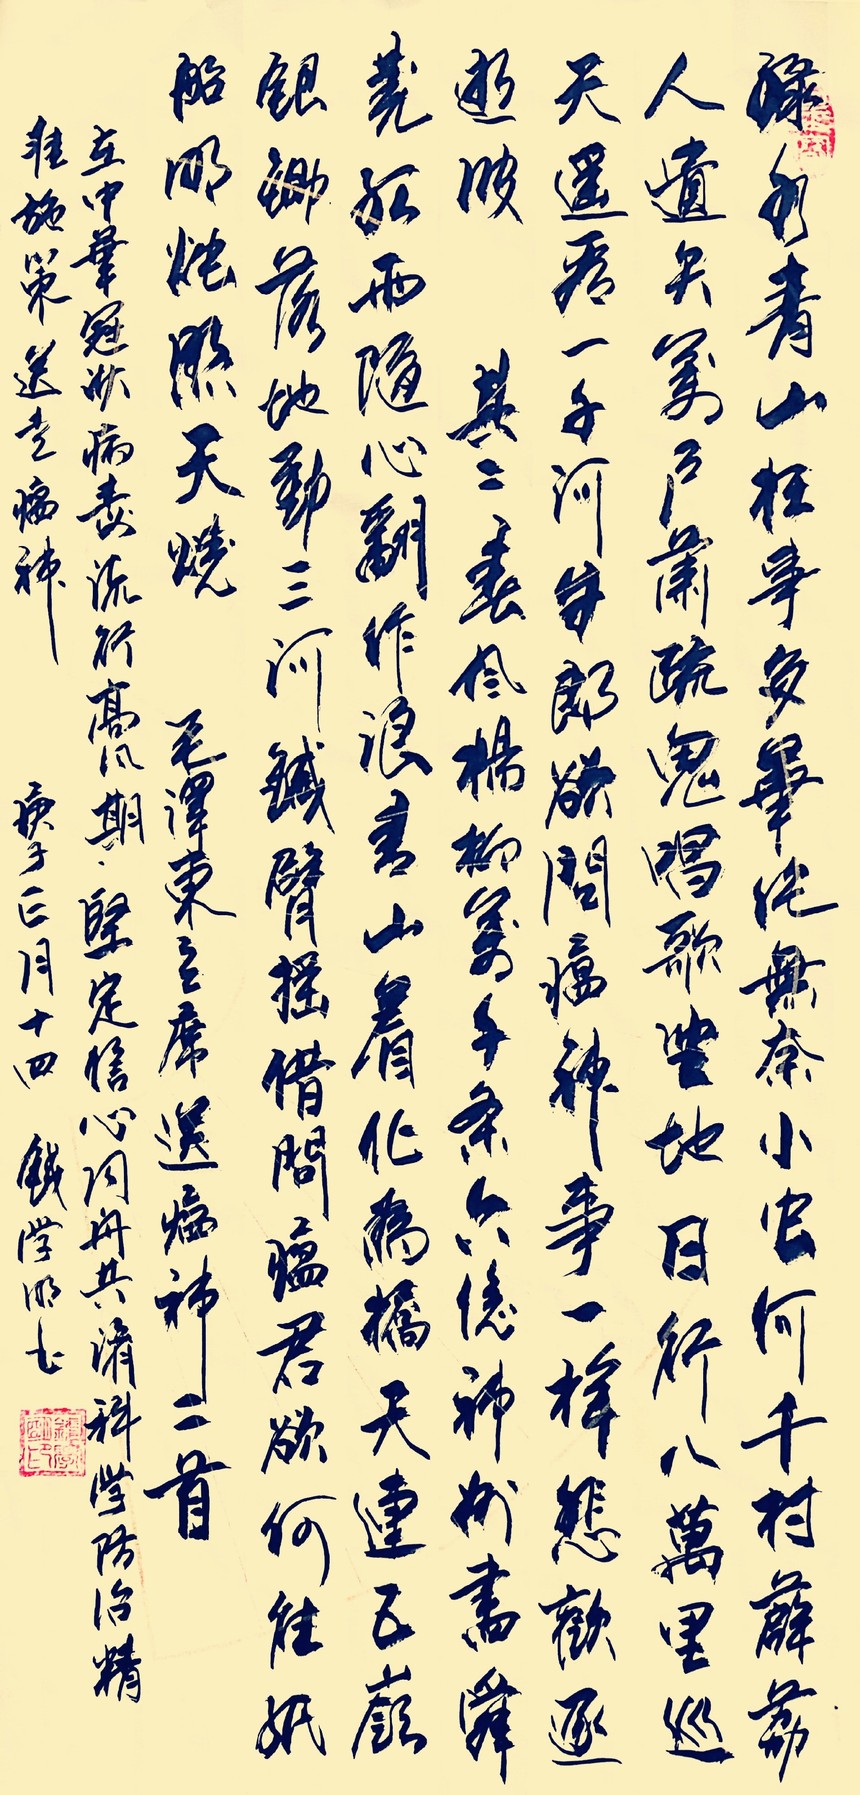 綠水青山枉事多華佗無奈小虫何千村薜荔
人遺矢萬戶蕭疏鬼唱歌坐地日行八萬里巡
天遥看一千河牛郎欲問瘟神事一樣悲歡逐
逝波 其二 春風楊柳萬千条六億神州盡舜
堯紅雨隨心翻作浪青山着化為橋天連五嶺
銀鋤落地動三河鐵臂搖借問瘟君欲何往紙
船明燭照天燒 毛澤東主席送瘟神二首
在中華冠状病毒流行高期堅定信心同舟共濟科學防治精
准施策送走瘟神 庚子正月十四 錢學明书